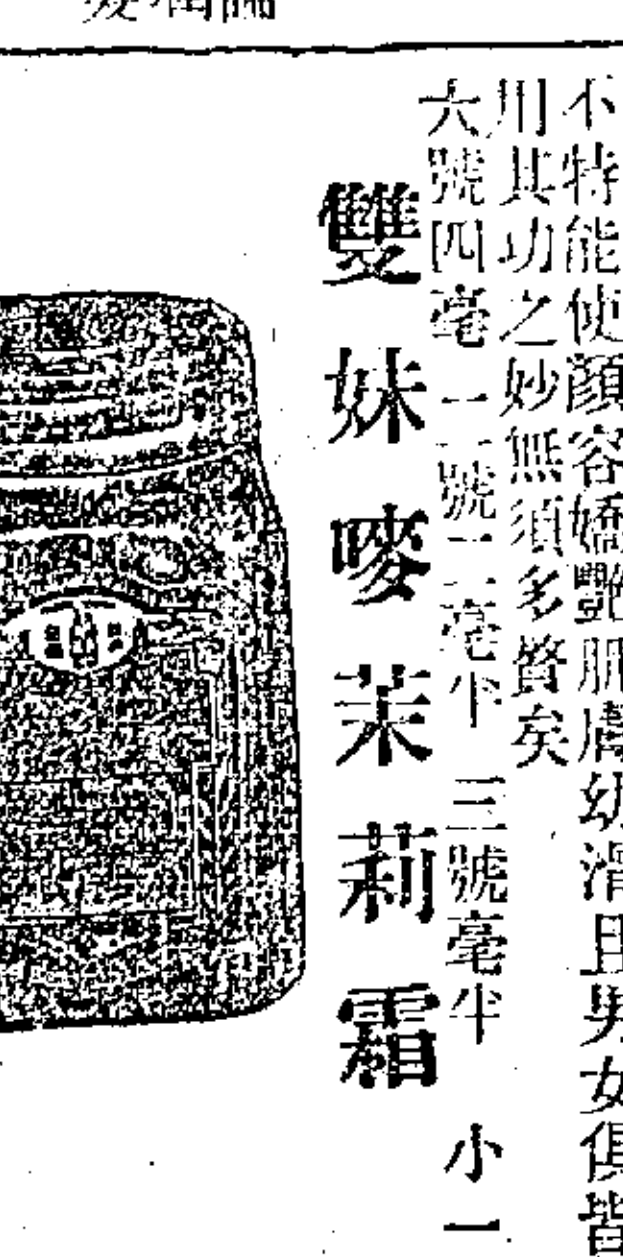 不特能使顏容嬌艷肌膚幼滑且男女俱皆
用其功之妙無須多贅矣
大號四毫 二號二毫半 三號毫半 小一
雙妹嘜茉莉霜